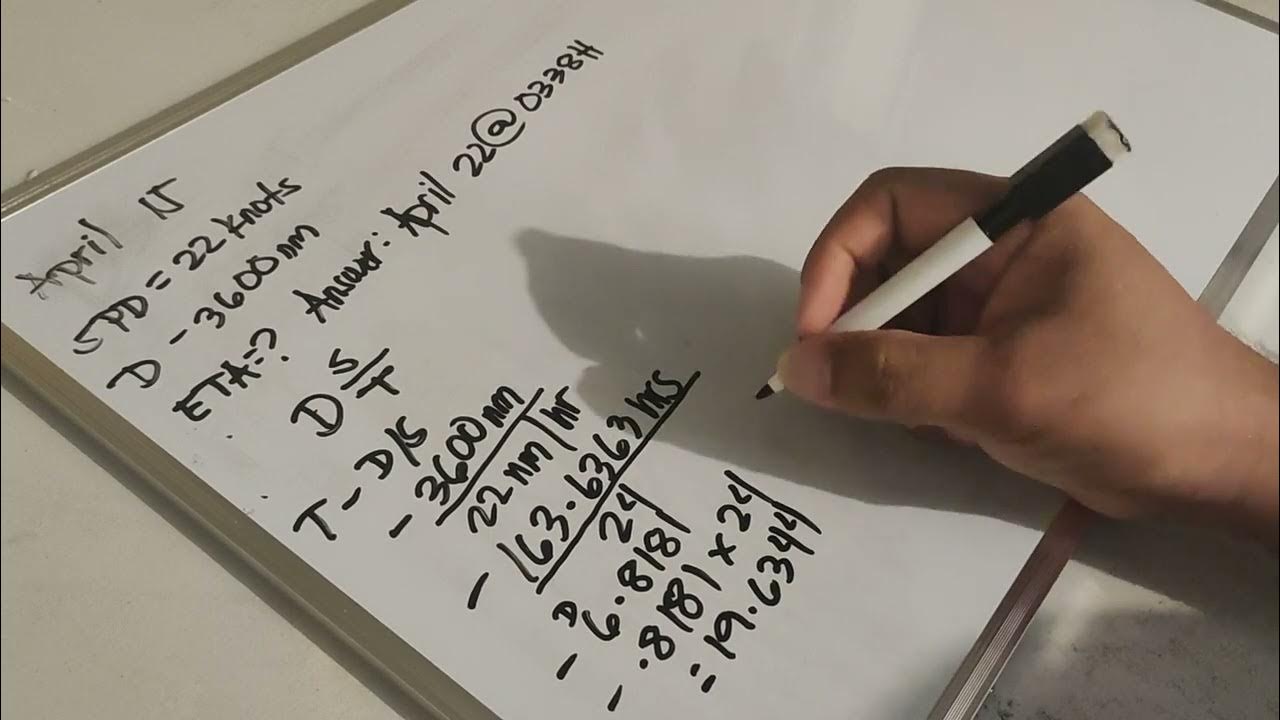 April 15
SPD = 22 knots
D - 3600 nm
ETA=? Answer: April 22 @ 0338H
D S/T
T - D/S
- 3600 nm
22 nm/hr
- 163.6363 hrs
24
- D 6.8181
- .8181 x 24
= 19.6344